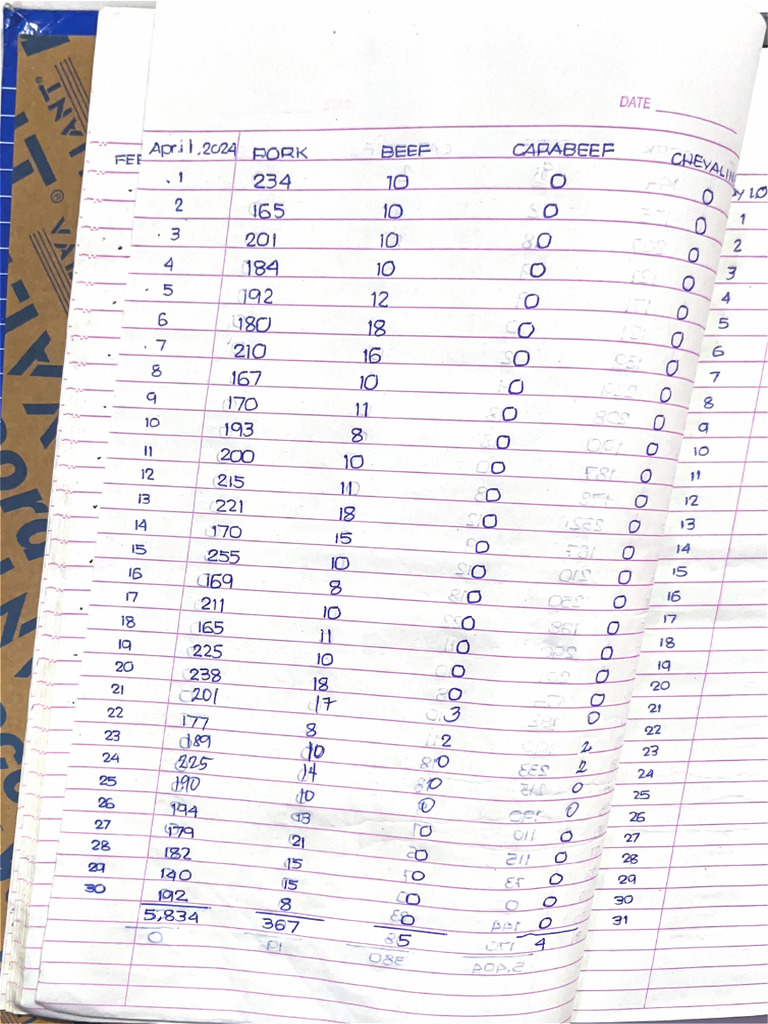 DATE
April, 2024 PORK BEEF CARABEEF CHEVALIN
1 234 10 0 0
2 165 10 0 0
3 201 10 0 0
4 184 10 0 0
5 192 12 0 0
6 180 18 0 0
7 210 16 0 0
8 167 10 0 0
9 170 11 0 0
10 193 8 0 0
11 200 10 0 0
12 215 11 0 0
13 221 18 0 0
14 170 15 0 0
15 255 10 0 0
16 169 8 0 0
17 211 10 0 0
18 165 11 0 0
19 225 10 0 0
20 238 18 0 0
21 201 17 3 0
22 177 8 2 2
23 189 10 0 2
24 225 14 0 0
25 190 10 0 0
26 194 13 0 0
27 179 21 0 0
28 182 15 0 0
29 140 15 0 0
30 192 8 0 0
5,834 367 5 4
1
2
3
4
5
6
7
8
9
10
11
12
13
14
15
16
17
18
19
20
21
22
23
24
25
26
27
28
29
30
31